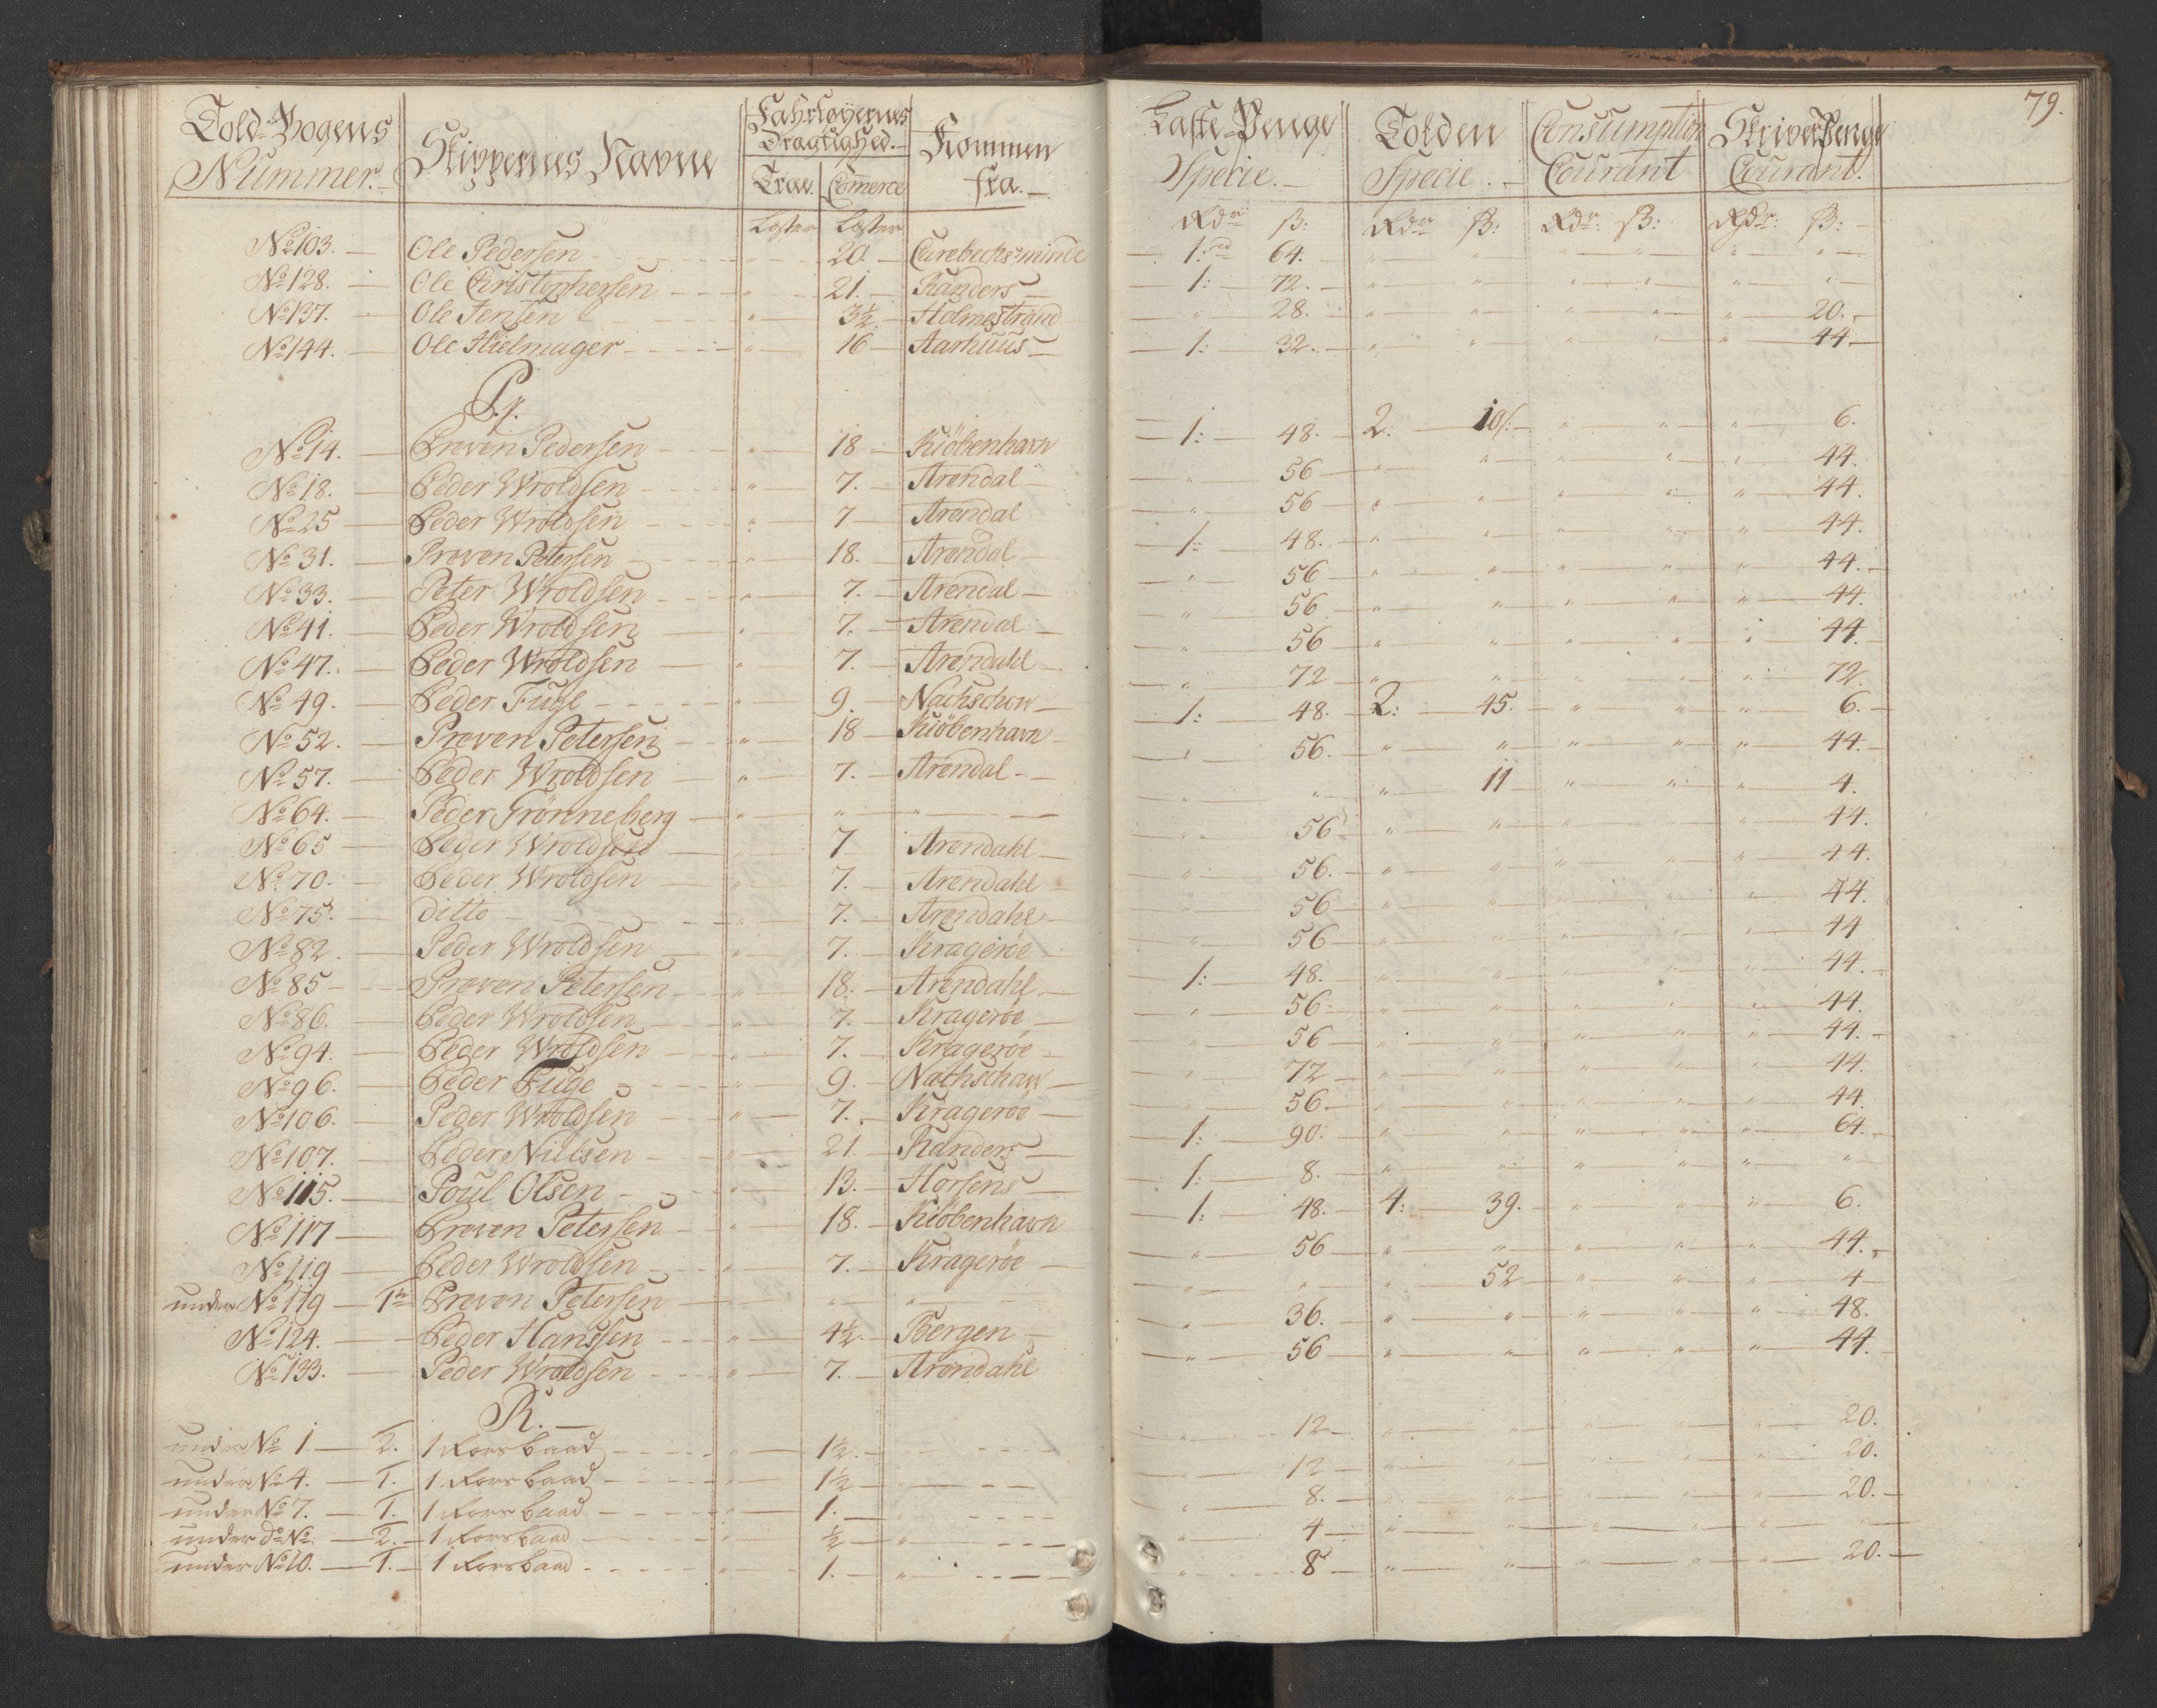 79.
Told-Bogens Nummer. | Skippernes Navne | Fahrtøyernes Dragtighed. | Kommen fra. | Laste-Penge Specie. | Tolden Specie. | Consumption Courant | SkriverPenge Courant.
Træ | Commerce
Læster | Læster | Rdr ß: | Rdr ß: | Rdr: ß: | Rdr: ß:
No 103. Ole Pedersen 20. Carebechs minde 1: 64. " " " " " "
No 128. Ole Christophersen " 21. Randers 1: 72. " " " " " "
No 137. Ole Jensen " 3½. Holmestrand " 28. " " " " " 20.
No 144. Ole Hielmager " 16 Aarhuus 1: 32. " " " " " 44
P.
No 14. Preven Pedersen " 18 Kiöbenhavn 1: 48. 2. 10/. " " " 6.
No 18. Peder Wroldsen " 7. Arendal " 56 " " " " " 44.
No 25 Peder Wroldsen " 7 Arendal " 56 " " " " " 44.
No 31. Preven Petersen " 18. Arendal 1: 48. " " " " " 44.
No 33. Peter Wroldsen " 7. Arendal " 56 " " " " " 44.
No 41. Peder Wroldsen " 7. Arendal " 56 " " " " " 44.
No 47. Peder Wroldsen " 7. Arendahl " 56 " " " " " 44.
No 49. Peder Fugl " 9. Nachschow " 72 " " " " " 72.
No 52. Preven Petersen " 18 Kiöbenhavn 1: 48. 2: 45. " " " 6.
No 57. Peder Wroldsen " 7. Arendal " 56. " " " " " 44.
No 64. Peder Grönneberg " " " " " " 11 " " " 4.
No 65 Peder Wroldsen 7 Arendahl " 56 " " " " " 44.
No 70. Peder Wroldsen " 7. Arendahl " 56. " " " " " 44.
No 75. Ditto " 7. Arendahl " 56 " " " " " 44.
No 82. Peder Wroldsen " 7. Krageröe " 56 " " " " " 44
No 85 Preven Petersen " 18. Arendahl 1: 48. " " " " " 44.
No 86. Peder Wroldsen " 7. Krageröe " 56 " " " " " 44.
No 94. Peder Wroldsen " 7. Krageröe " 56 " " " " " 44.
No 96. Peder Fuge " 9. Nachschow " 72 " " " " " 44.
No 106. Peder Wroldsen " 7. Krageröe " 56 " " " " " 44.
No 107. Peder Nielsen " 21. Randers 1: 90. " " " " " 64.
No 115. Poul Olsen " 13. Horsens 1: 8. " " " " " "
No 117 Preven Petersen " 18. Kiöbenhavn 1: 48. 4: 39. " " " 6.
No 119 Peder Wroldsen " 7. Krageröe " 56 " " " " " 44.
under No 119 1te Preven Petersen " " " " " 52 " " " 4
No 124. Peder Hanssen " 4½. Bergen " 36. " " " " " 48.
No 133. Peder Wroldsen " 7. Arendahl " 56 " " " " " 44.
R.
under No 1 2. 1 Rorsbaad " 1½. " 12 " " " " " 20.
under No 4. 1. 1 Rorsbaad 1½ " 12 " " " " " 20.
under No 7. 1. 1 Rorsbaad " 1. " " 8. " " " " " 20.
under do No. 2. 1 Rorsbaad " ½ " " 4 " " " " " "
under No 10. 1. 1 Rorsbaad " 1. " " 8 " " " " " 20.